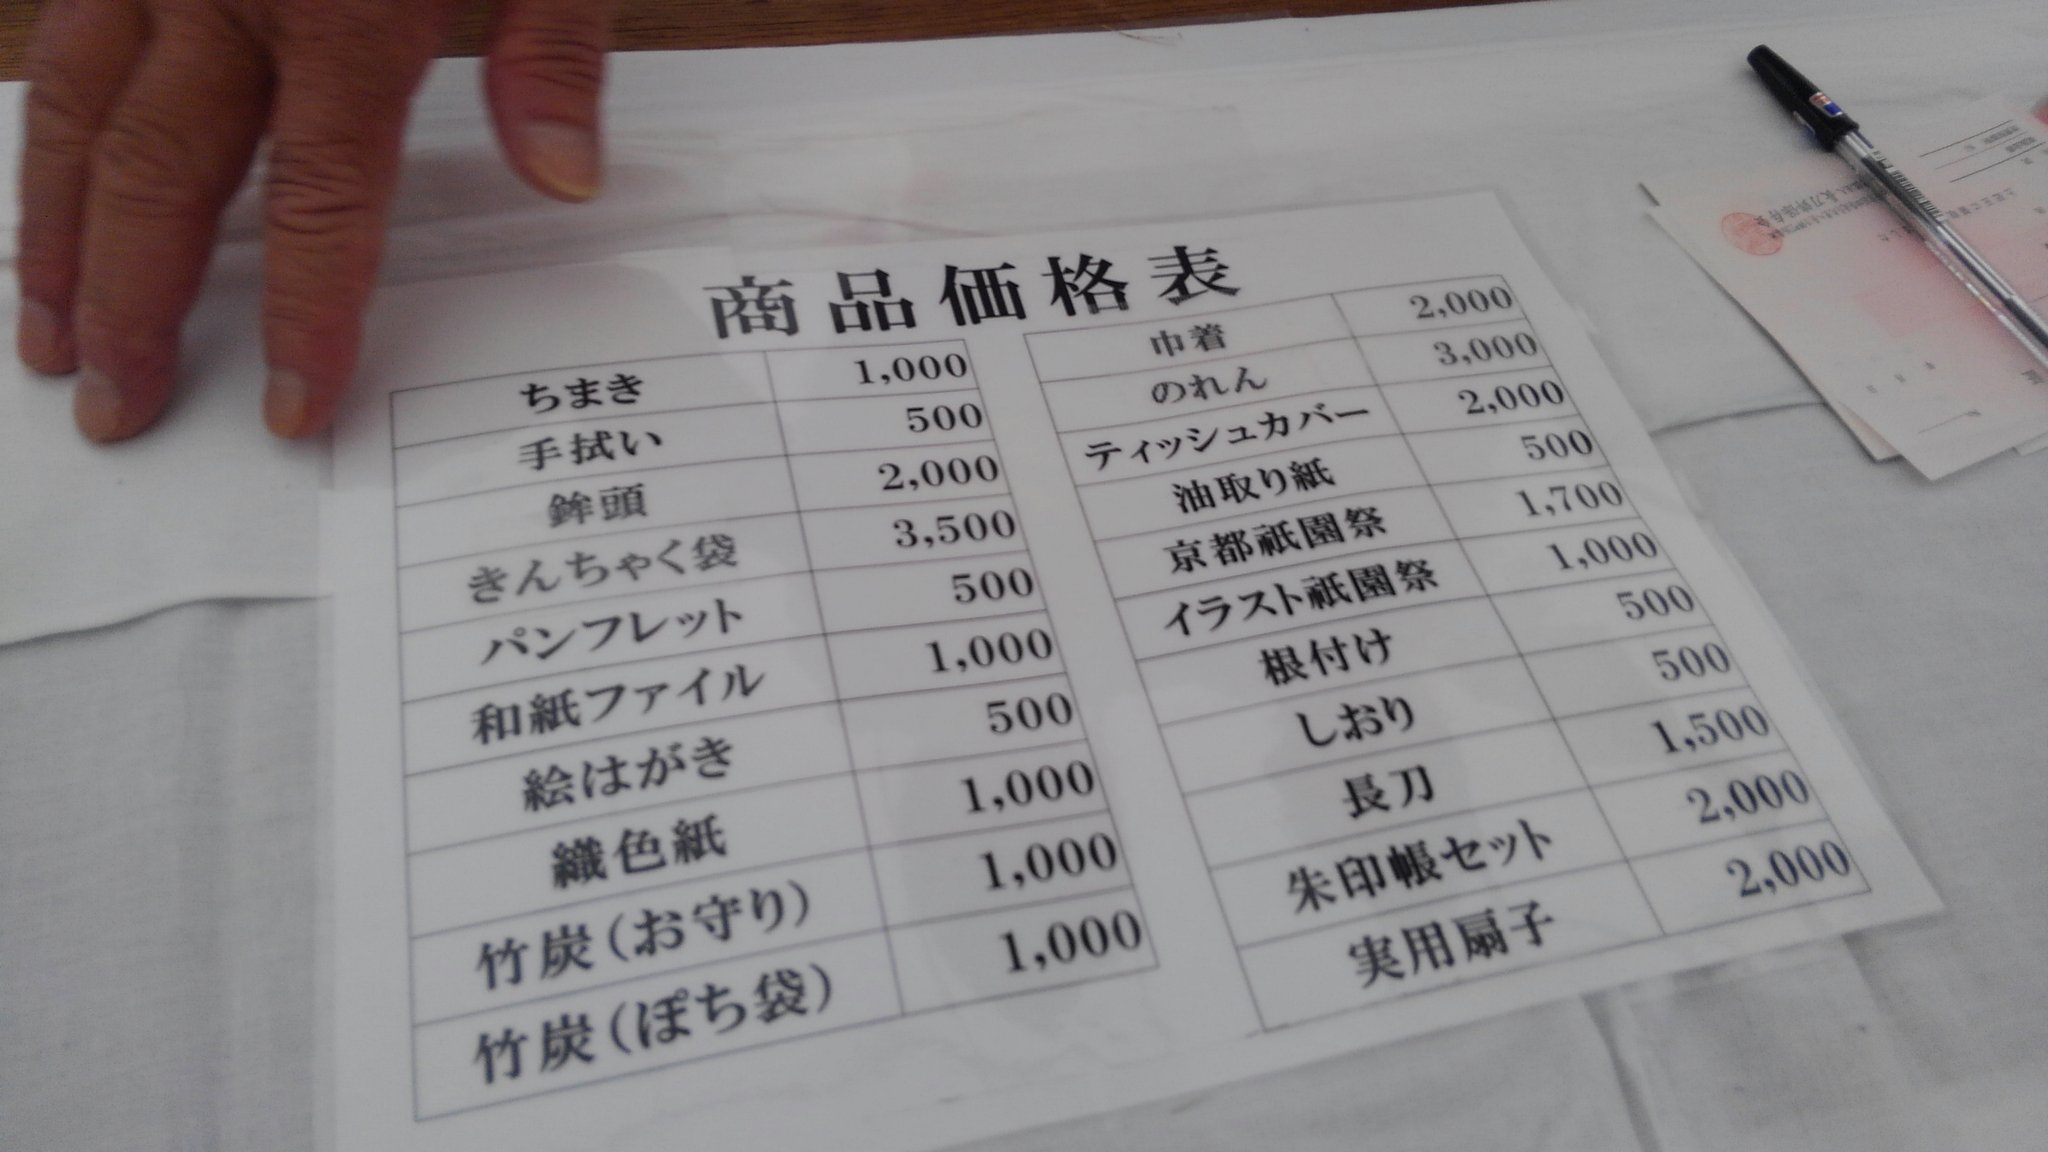 商品価格表
ちまき 1,000
手拭い 500
鉾頭 2,000
きんちゃく袋 3,500
パンフレット 500
和紙ファイル 1,000
絵はがき 500
織色紙 1,000
竹炭（お守り） 1,000
竹炭（ぽち袋） 1,000
巾着 2,000
のれん 3,000
ティッシュカバー 2,000
油取り紙 500
京都祇園祭 1,700
イラスト祇園祭 1,000
根付け 500
しおり 500
長刀 1,500
朱印帳セット 2,000
実用扇子 2,000
長刀鉾保存会